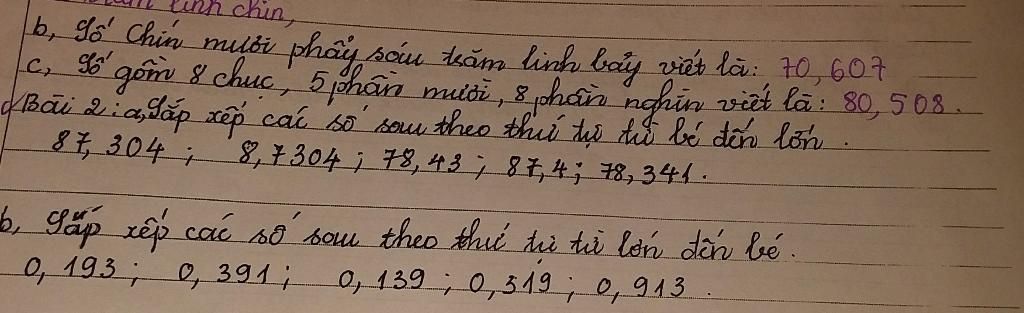 linh chín,
b, Số Chín mươi phẩy sáu trăm linh bảy viết là: 70,607
c, Số gồm 8 chục, 5 phần mười, 8 phần nghìn viết là: 80,508.
Bài 2: a, Sắp xếp các số sau theo thứ tự từ bé đến lớn.
87,304; 8,7304; 78,43; 87,4; 78,341.
b, Sắp xếp các số sau theo thứ từ từ lớn đến bé.
0,193; 0,391; 0,139; 0,319; 0,913.